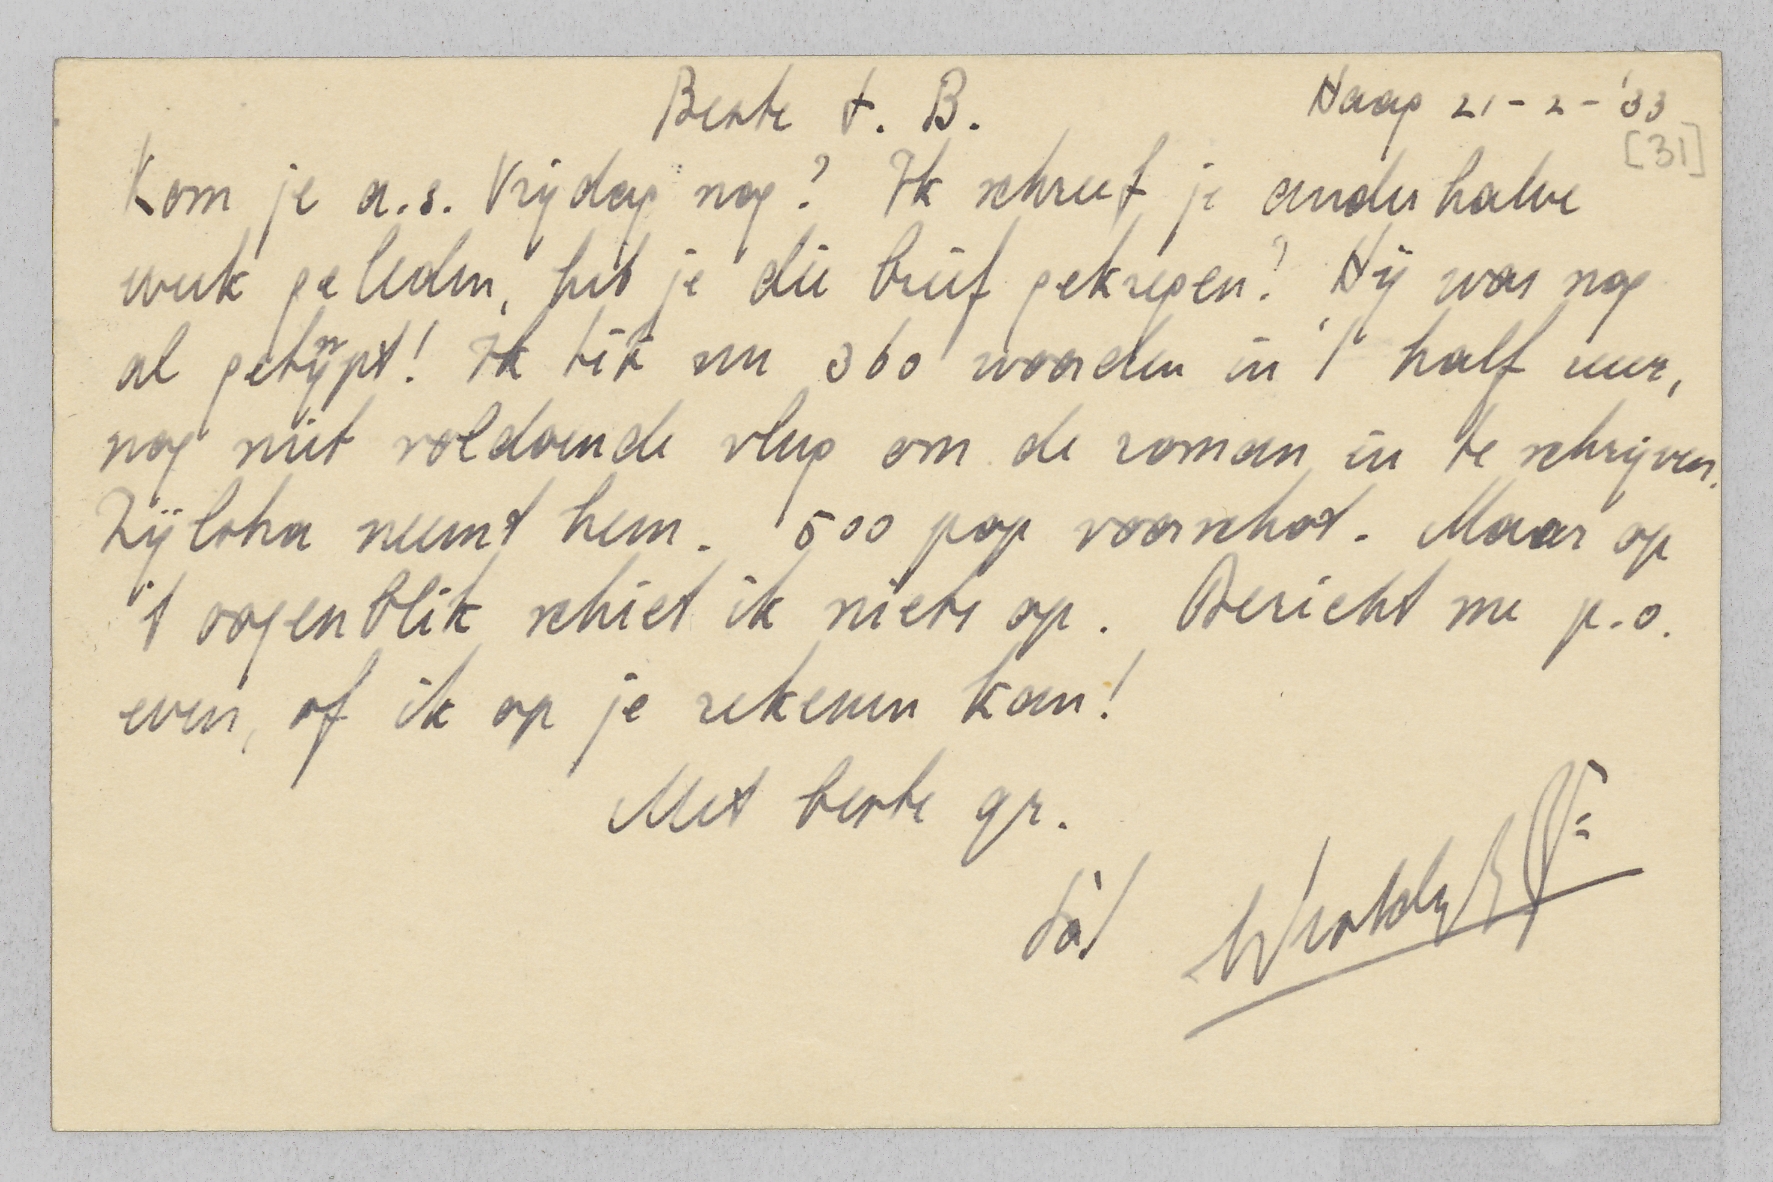 Beste t. B.
Haag 21-2-'33
[31]
Kom je a.s. Vrijdag nog? Ik schreef je anderhalve
week geleden, heb je die brief gekregen? Hij was nog
al getijpt! Ik tik nu 360 woorden in 't half uur,
nog niet voldoende vlug om de roman in te schrijven.
Zijlstra neemt hem. 500 pop voorschot. Maar op
't oogenblik schiet ik niets op. Bericht me p.o.
even, of ik op je rekenen kan!
Met beste gr.